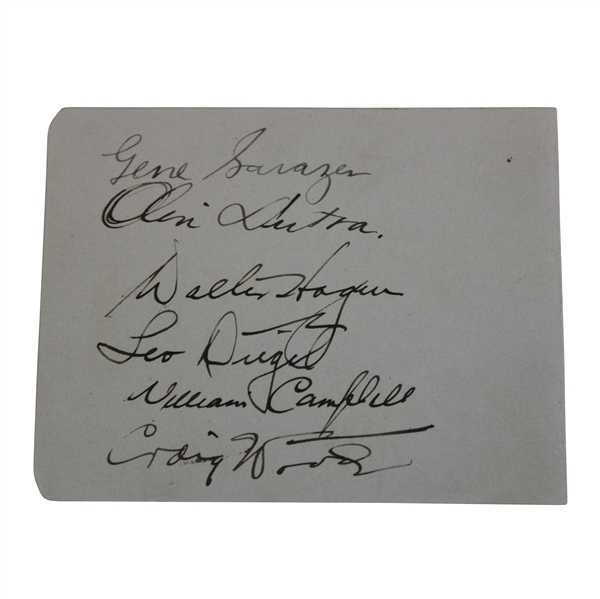 Gene Sarazen
Olin Dutra.
Walter Hagen
Leo Diegel
William Campbell
Craig Wood